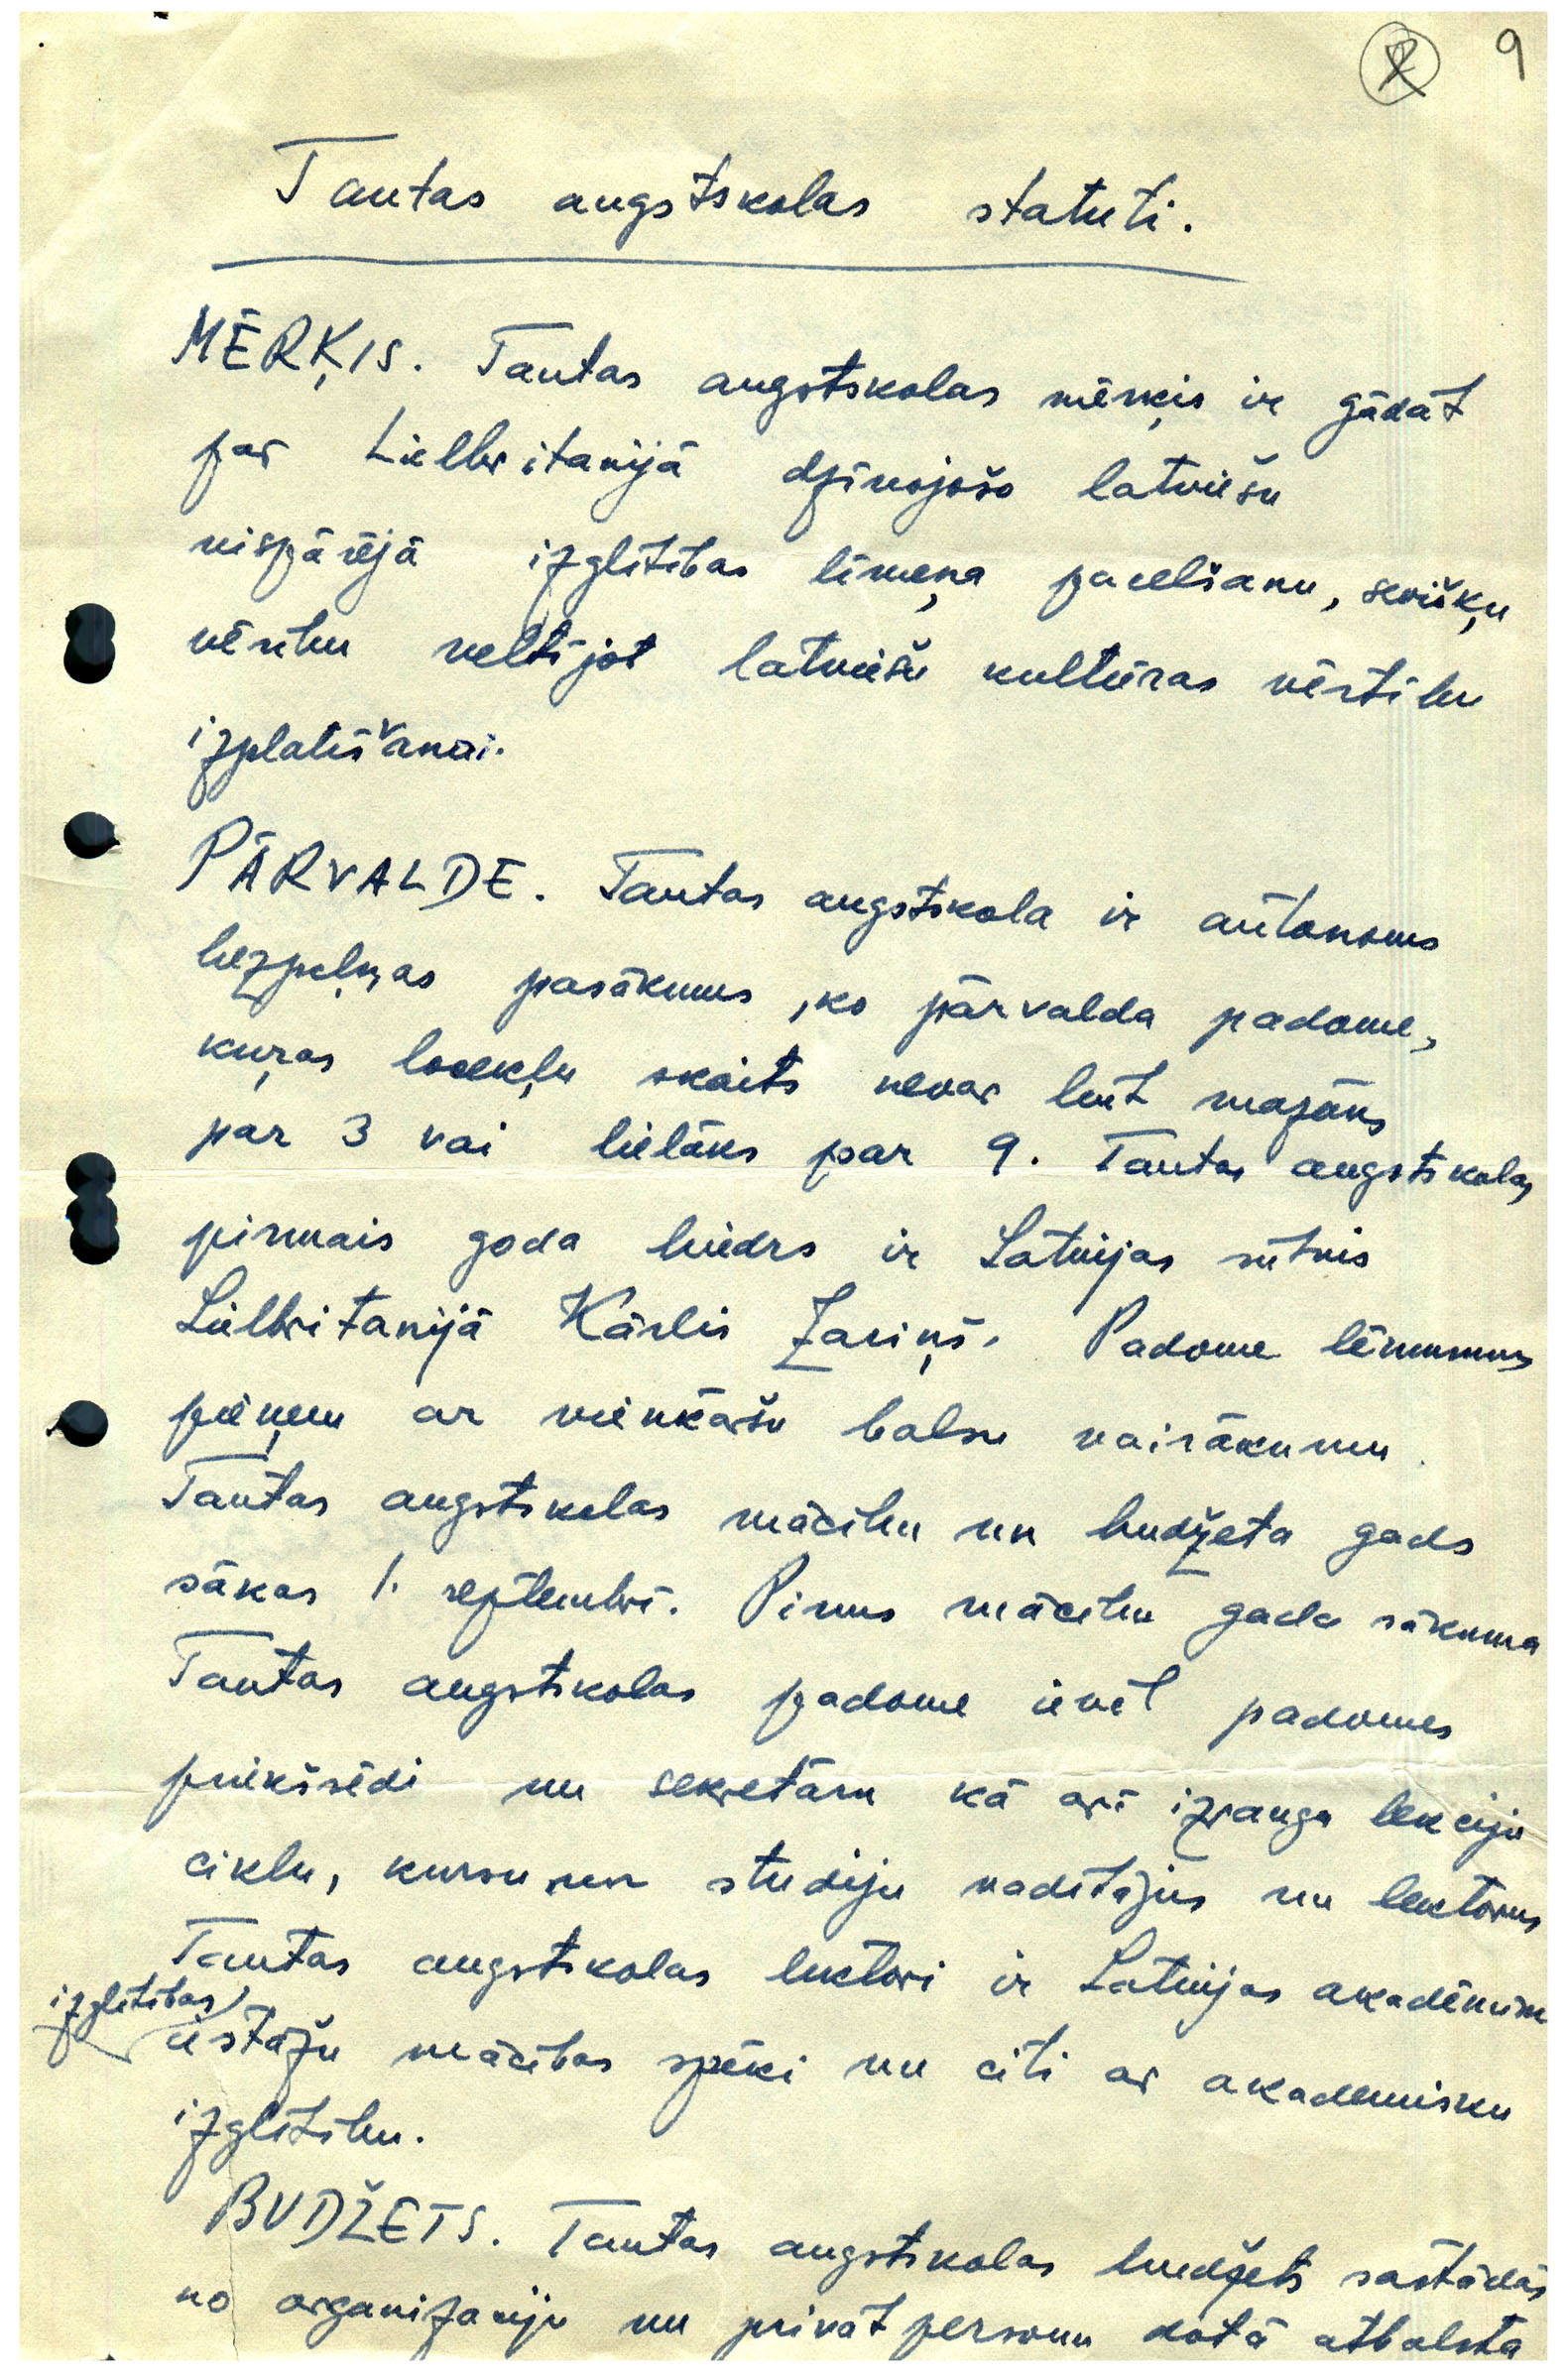 9
Tautas augstskolas statuti.
MĒRĶIS. Tautas augstskolas mērķis ir gādāt
par Lielbritanijā dzīvojošo latviešu
vispārējā izglītības līmeņa pacelšanu, sevišķu
vērību veltījot latviešu kultūras vērtību
izplatīšanai.
PĀRVALDE. Tautas augstskola ir autonoms
bezpeļņas pasākums, ko pārvalda padome,
kuŗas locekļu skaits nevar būt mazāks
par 3 vai lielāks par 9. Tautas augstskolas
pirmais goda biedrs ir Latvijas sūtnis
Lielbritanijā Kārlis Zariņš. Padome lēmumus
pieņem ar vienkāršu balsu vairākumu.
Tautas augstskolas mācību un budžeta gads
sākas 1. septembrī. Pirms mācību gada sākuma
Tautas augstskolas padome ievēl padomes
priekšsēdi un sekretāru kā arī izrauga lekciju
ciklu, kursu un studiju vadītājus un lektorus
Tautas augstskolas lektori ir Latvijas akadēmisko
izglītības
iestāžu mācības spēki un citi ar akademisku
izglītību.
BUDŽETS. Tautas augstskolas budžets sastādās
no organizaciju un privātpersonu dotā atbalsta